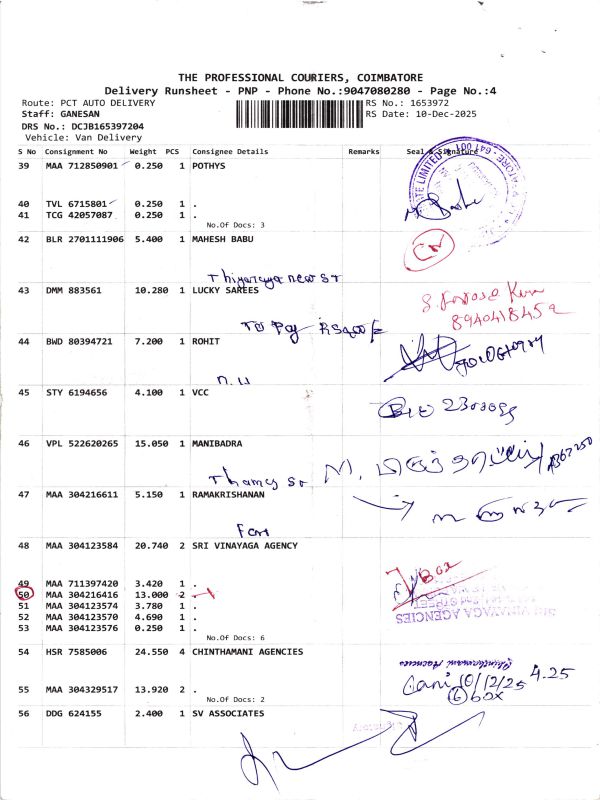 THE PROFESSIONAL COURIERS, COIMBATORE
Delivery Runsheet - PNP - Phone No.:9047080280 - Page No.:4
Route: PCT AUTO DELIVERY
RS No.: 1653972
Staff: GANESAN
RS Date: 10-Dec-2025
DRS No.: DCJB165397204
Vehicle: Van Delivery
S No Consignment No Weight PCS Consignee Details Remarks Seal & Signature
39 MAA 712850901 0.250 1 POTHYS
40 TVL 6715801 0.250 1 .
41 TCG 42057087 0.250 1 .
No.Of Docs: 3
42 BLR 2701111906 5.400 1 MAHESH BABU
CN
Thiyagaraya new st
43 DMM 883561 10.280 1 LUCKY SAREES
8940418452
To Pay
44 BWD 80394721 7.200 1 ROHIT
45 STY 6194656 4.100 1 VCC
46 VPL 522620265 15.050 1 MANIBADRA
47 MAA 304216611 5.150 1 RAMAKRISHANAN
48 MAA 304123584 20.740 2 SRI VINAYAGA AGENCY
Box
49 MAA 711397420 3.420 1 .
50 MAA 304216416 13.000 2 .
51 MAA 304123574 3.780 1 .
52 MAA 304123570 4.690 1 .
53 MAA 304123576 0.250 1 .
SRI VINAYAGA AGENCIES
No.Of Docs: 6
54 HSR 7585006 24.550 4 CHINTHAMANI AGENCIES
Chinthamani Agencies
4.25
10/12/25
55 MAA 304329517 13.920 2 .
6 box
No.Of Docs: 2
56 DDG 624155 2.400 1 SV ASSOCIATES